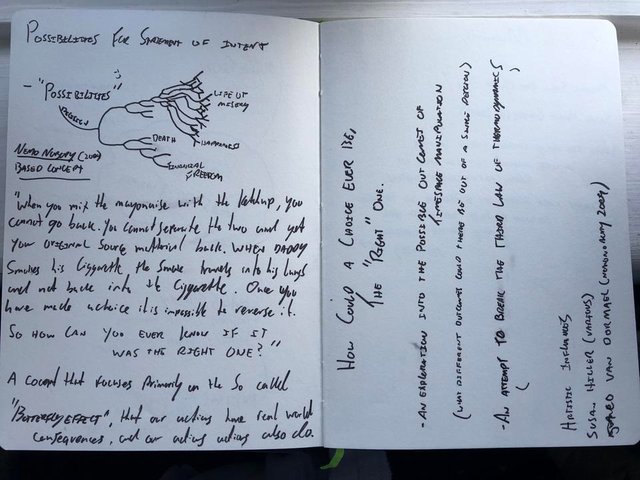 Possibilities for Statement of Intent
- "Possibilities" :)
Decision
Life of
Misery
Happiness
Death
Financial
Freedom
Based Concept
"When you mix the mayonnaise with the ketchup, you
cannot go back. You cannot seperate the two and get
your original source material back. When Daddy
smokes his Ciggarette, the smoke travels into his lungs
and not back into the Ciggarette. Once you
have made a choice it is impossible to reverse it.
So how can you ever know if it
was the right one?"
A concept that focuses primarily on the so called
"Butterfly Effect", that our actions have real world
consequences, and our acting actions also do.
How could a choice ever be,
The "Right" one.
- An exploration into the possible outcomes of
timespace manipulation
(what different outcomes could there be out of a single decision)
- An attempt to break the third law of thermodynamics
Artistic Influences
Susan Hiller (various)
Van Dormael